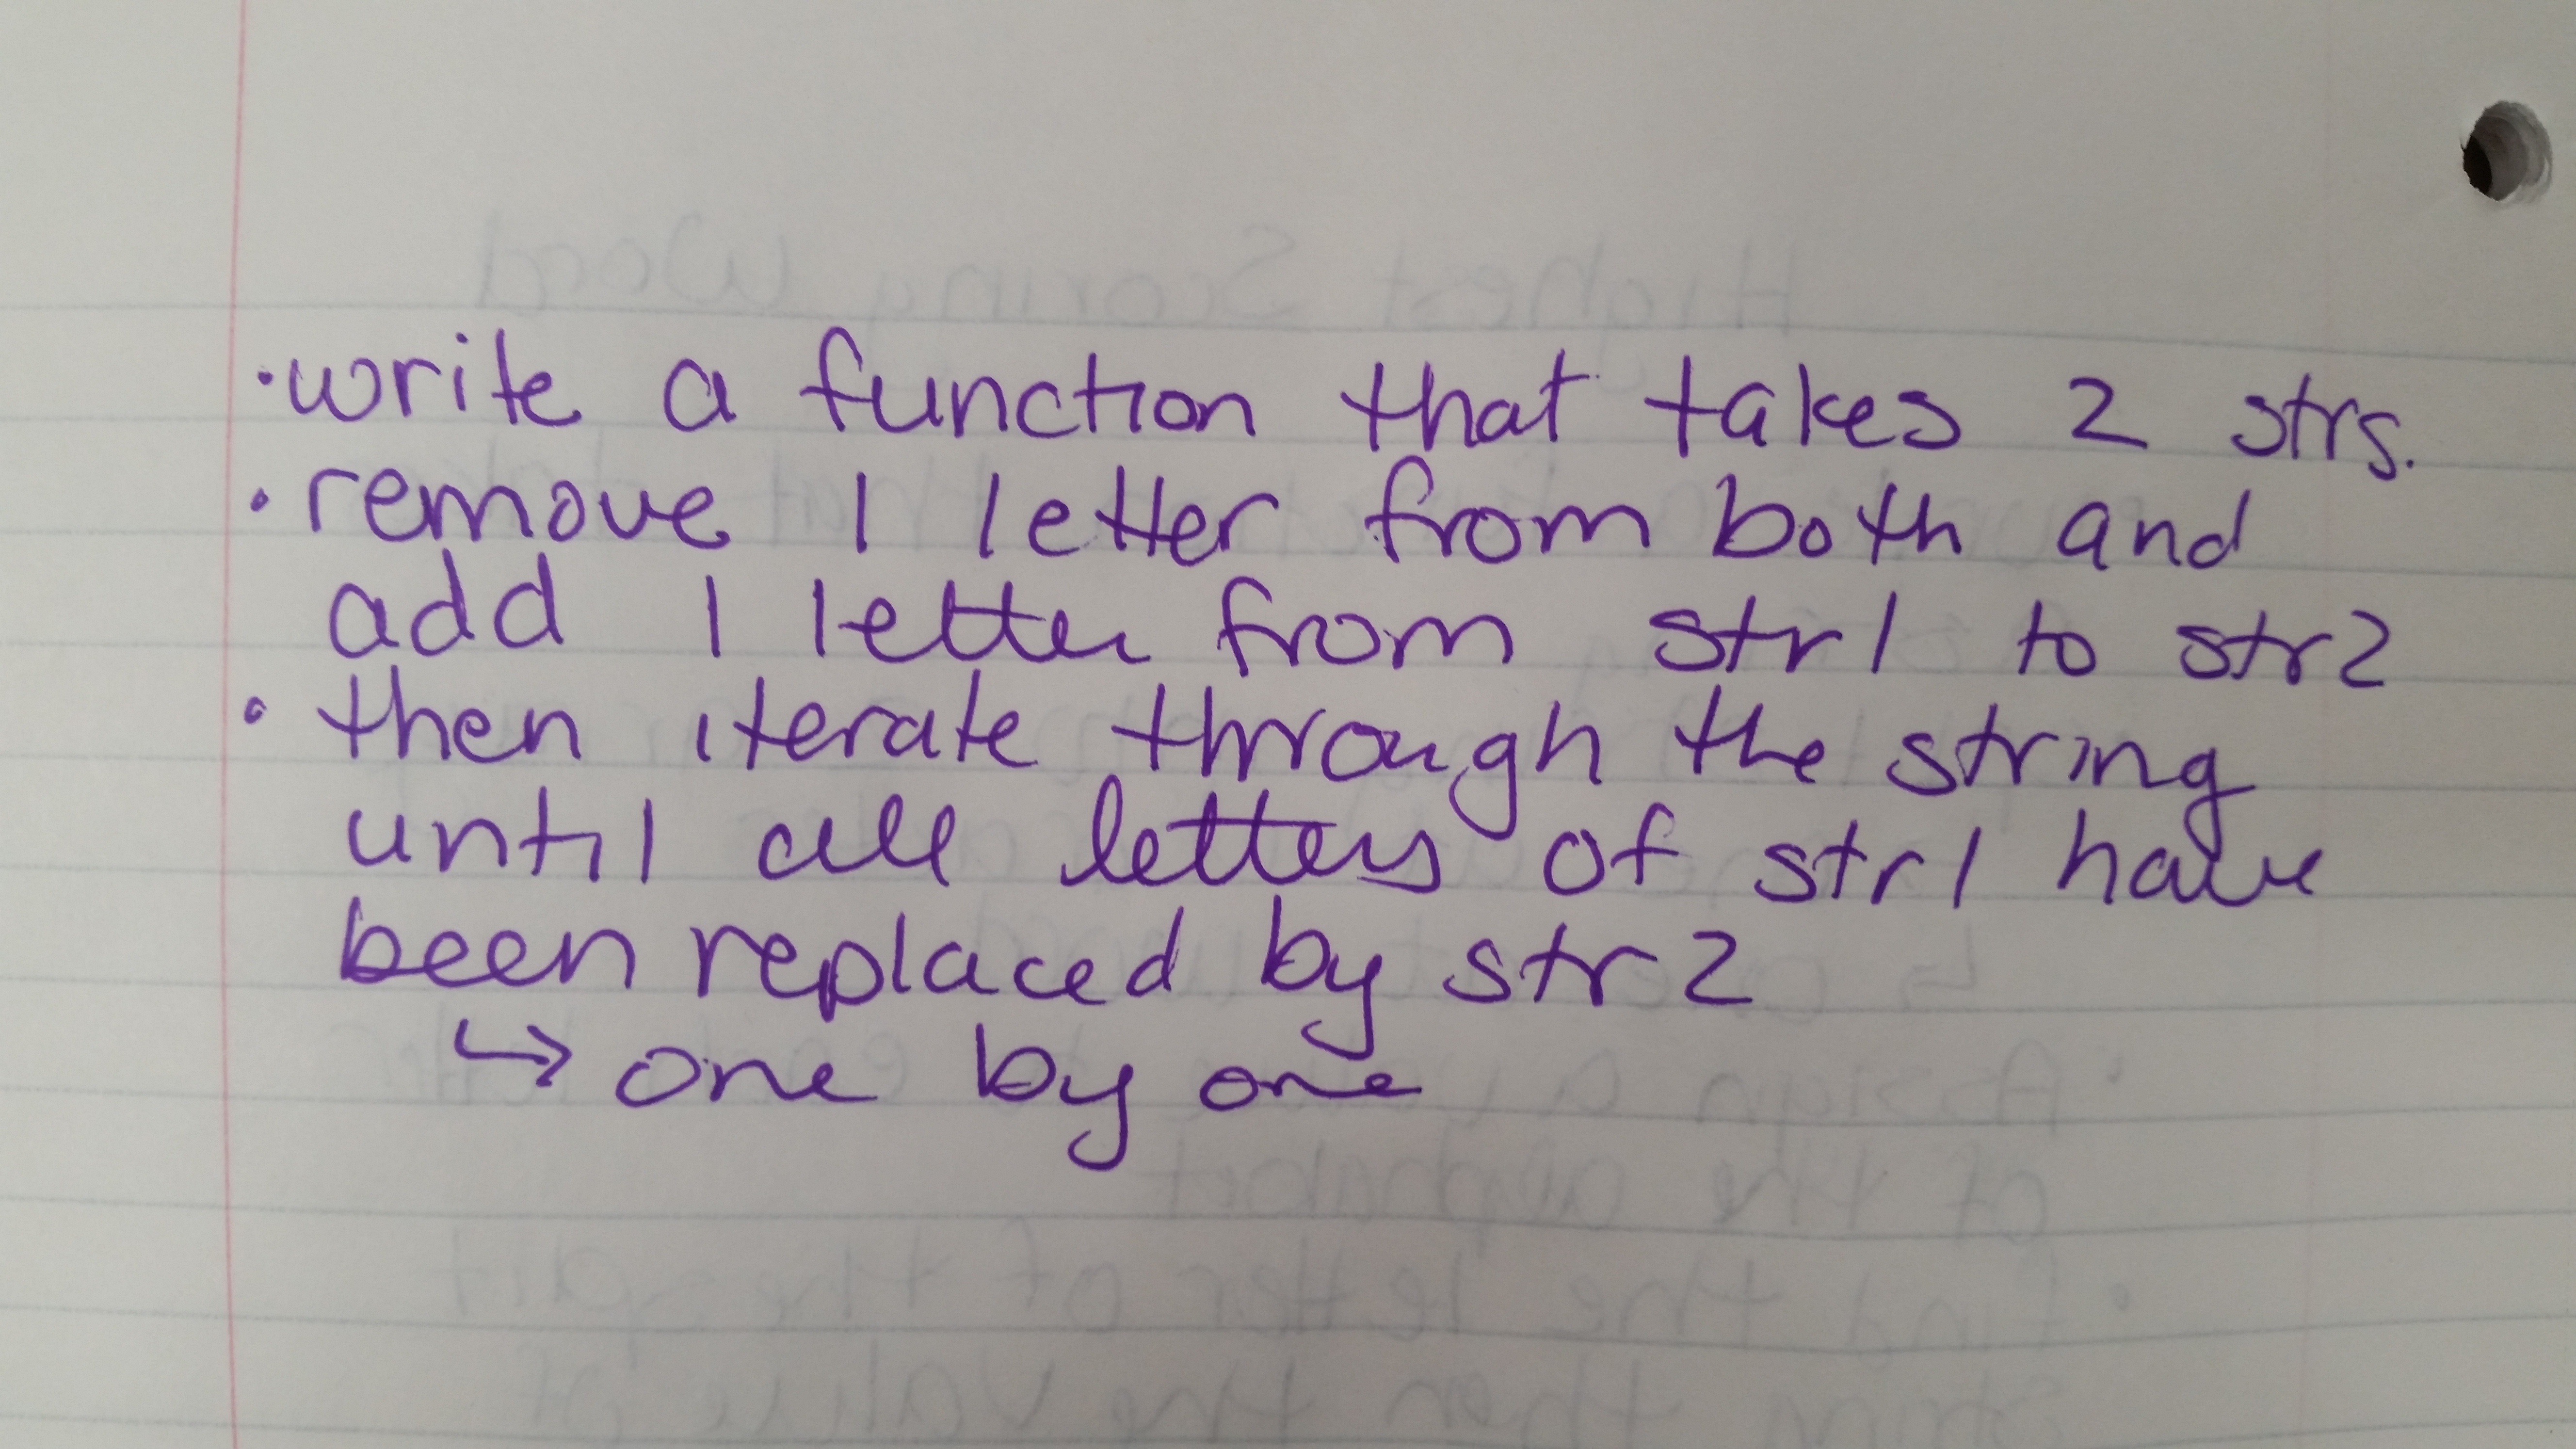 ·write a function that takes 2 strs.
· remove 1 letter from both and
add 1 letter from str1 to str2
· then iterate through the string
until all letters of str1 have
been replaced by str2
↳ one by one